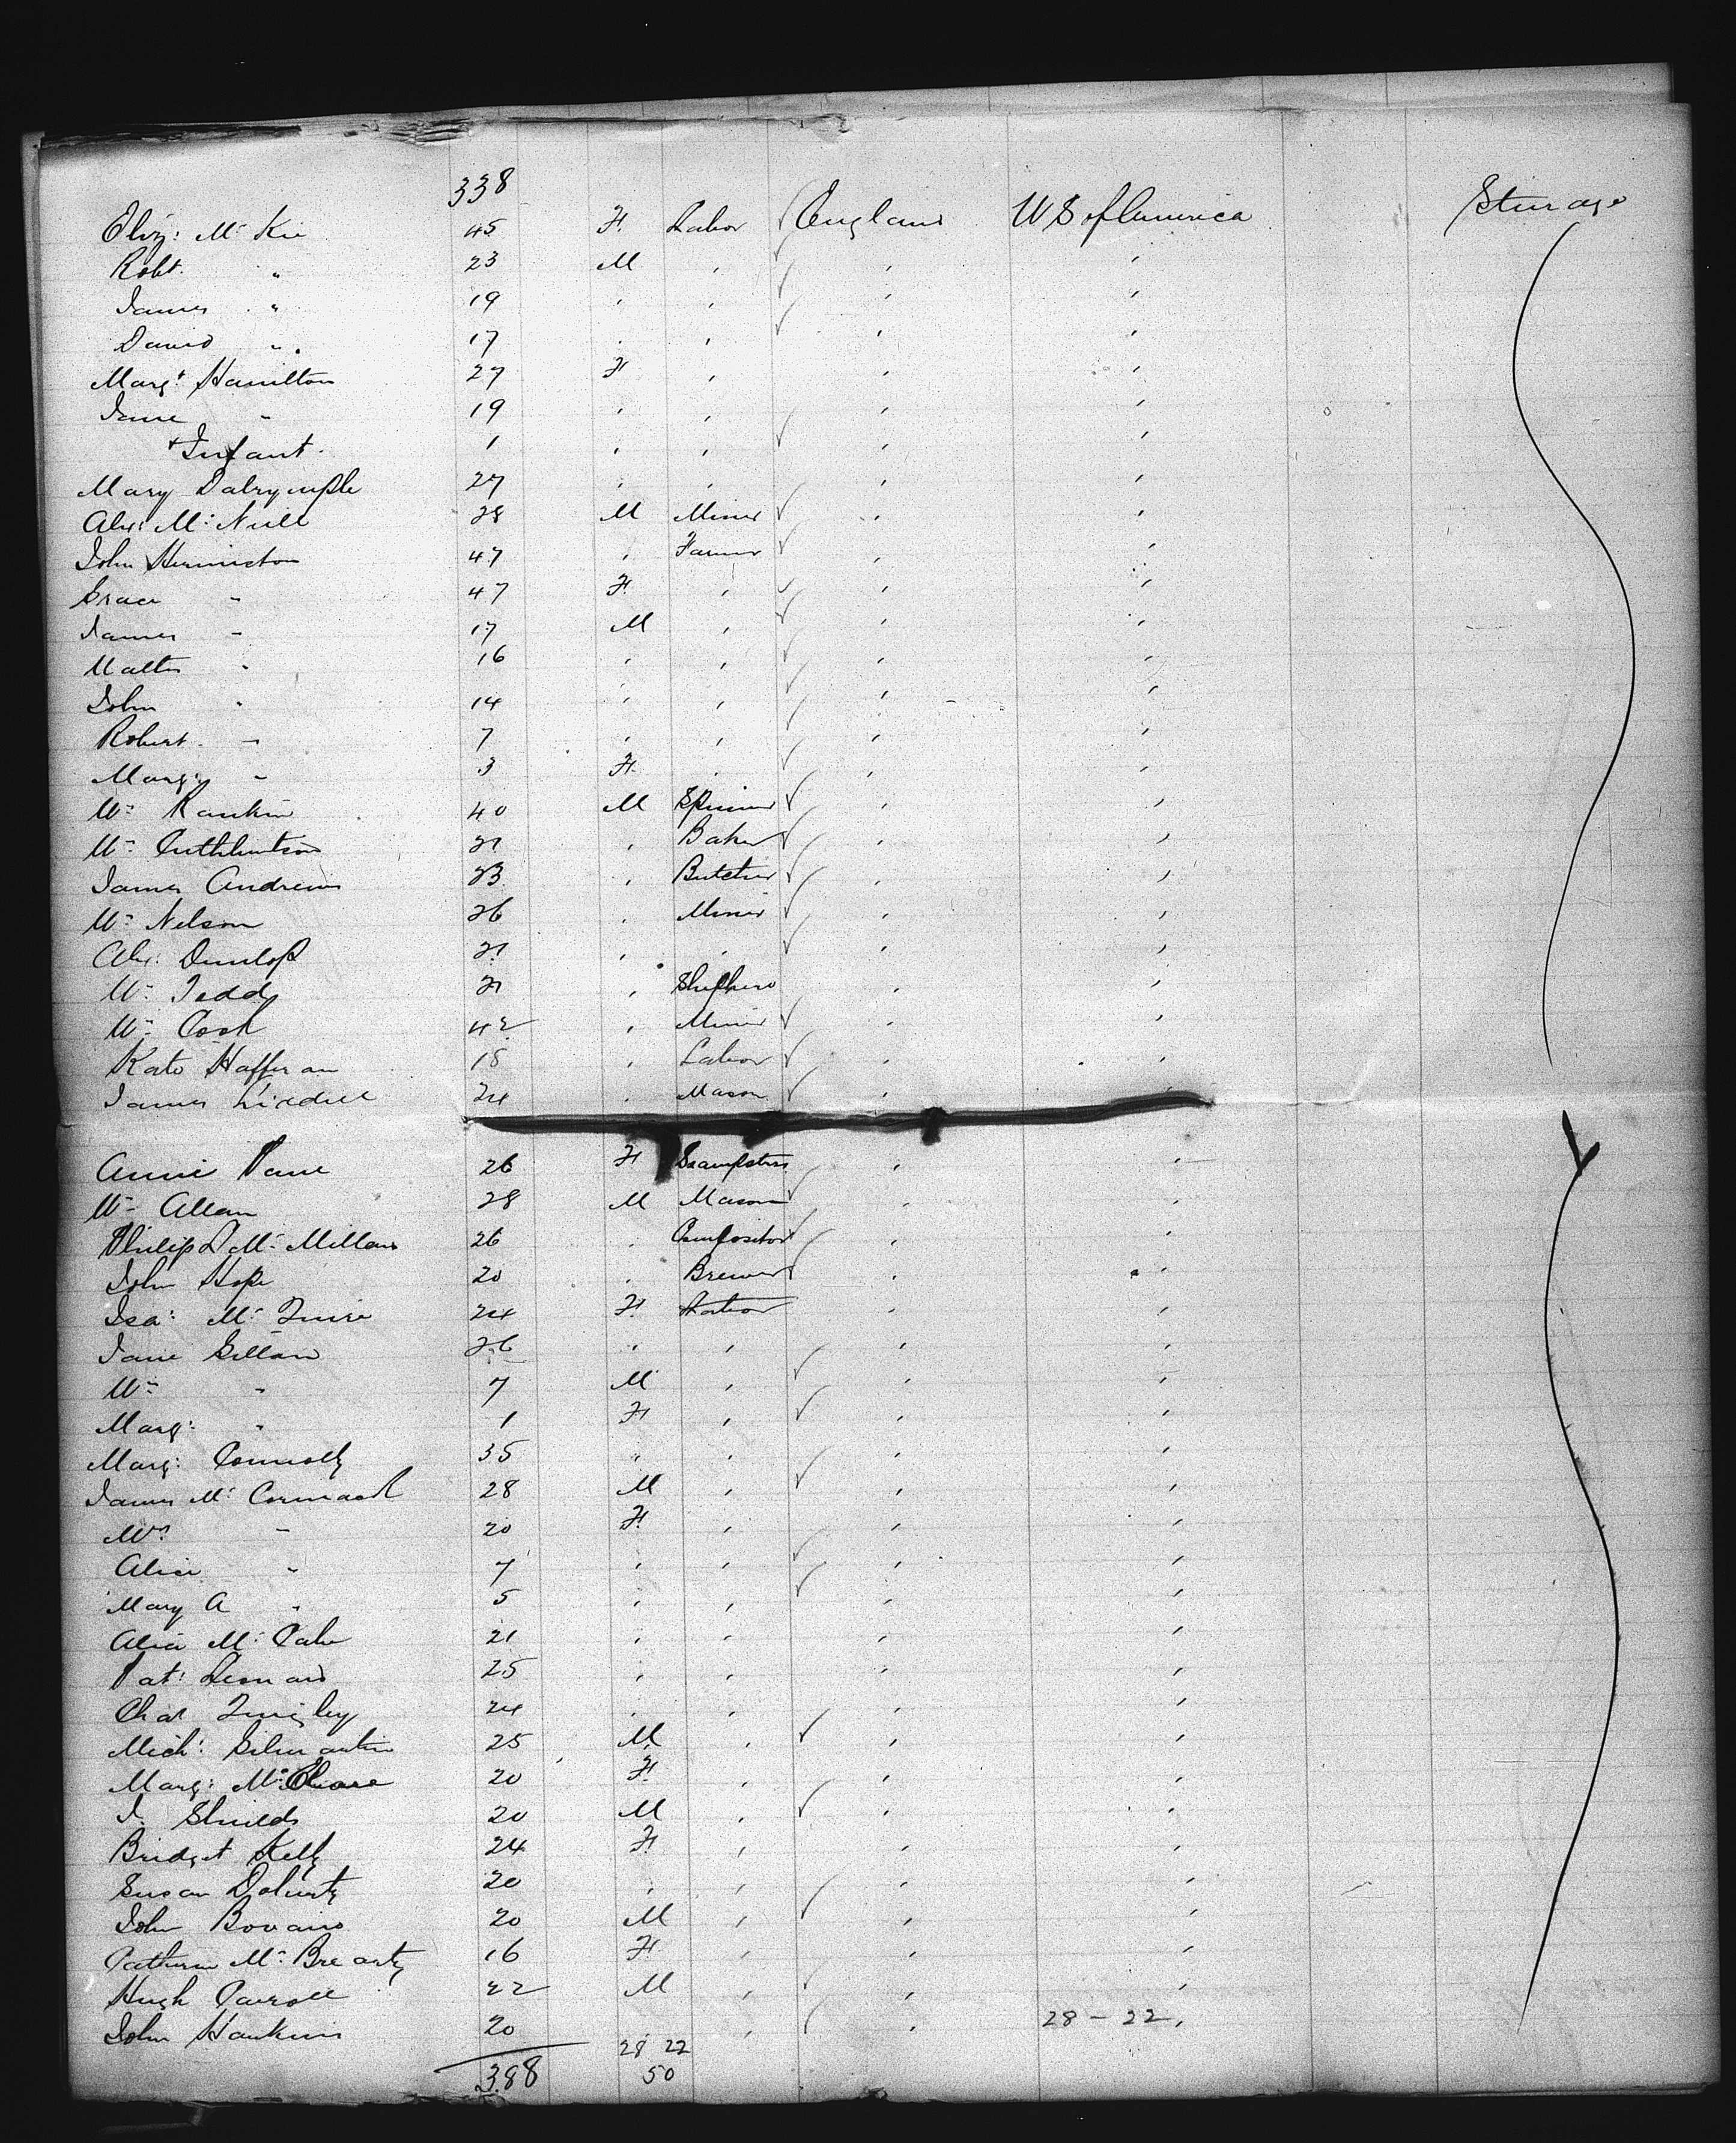 338
Eliz: Mc Kie 45 F. Labor England U S of America Steerage
Robt. " 23 M
James " 19
David " 17
Margt Hamilton 27 F
Jane " 19
+ Infant. 1
Mary Dalrymple 27
Alex: Mc Neill 28 M Miner
John Hermiston 47 Farmer
Grace " 47 F.
James " 17 M
Walter " 16
John " 14
Robert " 7
Marg: " 3 F.
Wm Rankin 40 M Spinner
Wm Cuthbertson 21 Baker
James Andrews 23 Butcher
Wm Nelson 26 Miner
Alex: Dunlop 21
Wm Tedd 21 Shepherd
Wm Cook 42 Miner
Kate Hafferan 18 Labor
James 24 Mason
Annie 26 F Seampstress
Wm Allan 28 M Mason
Philip D Mc Millan 26 Compositor
John Hope 20 Brewer
Isa: Mc 24 F. Labor
Jane Gillan 26
Wm " 7 M
Marg: " 1 F
Marg: Connolly 35 "
James Mc Cormack 28 M
Mrs " 20 F.
Alice " 7
Mary A " 5
Alice Mc Cabe 21
Pat: Leonard 25
Chas Quigley 24
Mich: Gilmartin 25 M
Marg: Mc 20 F.
J. Shields 20 M
Bridget Kelly 24 F
Susan Doherty 20
John 20 M
Catherine Mc Brearty 16 F
Hugh Carroll 22 M
John Hawkins 20 28 - 22
28 22
388 50